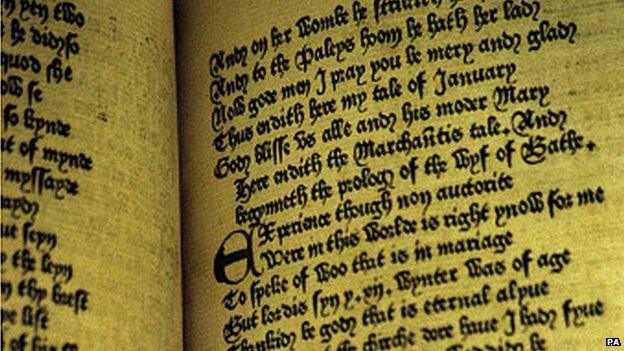 yn yen two
he didyso
quod she
w se
so kynde
ut of mynde
myssayde
saydy
ut seyn
y the leyn
n thy brest
e list
Andy on her wombe he
Andy to the Paleys hoom he hath her lady
Now gode men I pray you be mery andy glady
Thus endith here my tale of January
Gody blisse vs alle andy his moder Mary
Here endith the Marchantis tale. Andy
begynneth the prolog of the wyf of Bathe.
Experience though non auctorite
Were in this Worlde is right ynow for me
To speke of woo that is in mariage
But lordis syn y. xij. wynter Was of age
Thankidy be gody that is eternal alyue
at the chirche dore haue I hady fyue
be
PA